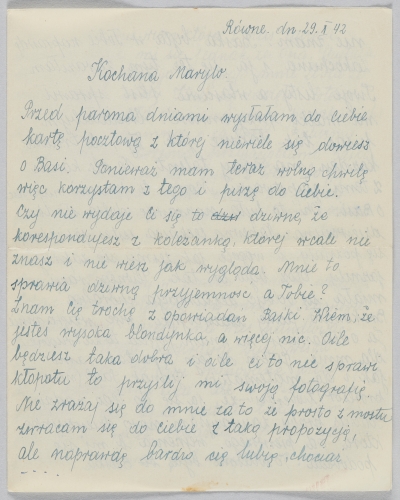 Równe. dn 29. X 42
Kochana Marylo.
Przed paroma dniami wysłałam do Ciebie
kartę pocztową z której niewiele się dowiesz
o Basi. Ponieważ mam teraz wolną chwilę
więc korzystam z tego i piszę do Ciebie.
Czy nie wydaje Ci się to dziwne, że
korespondujesz z koleżanką, której wcale nie
znasz i nie wiesz jak wygląda. Mnie to
sprawia dziwną przyjemność a Tobie?
Znam Cię trochę z opowiadań Baśki. Wiem, że
jesteś wysoka blondynka, a więcej nic. O ile
będziesz taka dobra i o ile ci to nie sprawi
kłopotu to przyślij mi swoją fotografię.
Nie zrażaj się do mnie za to że prosto z mostu
zwracam się do ciebie z taką propozycją,
ale naprawdę bardzo cię lubię, chociaż
- - - -